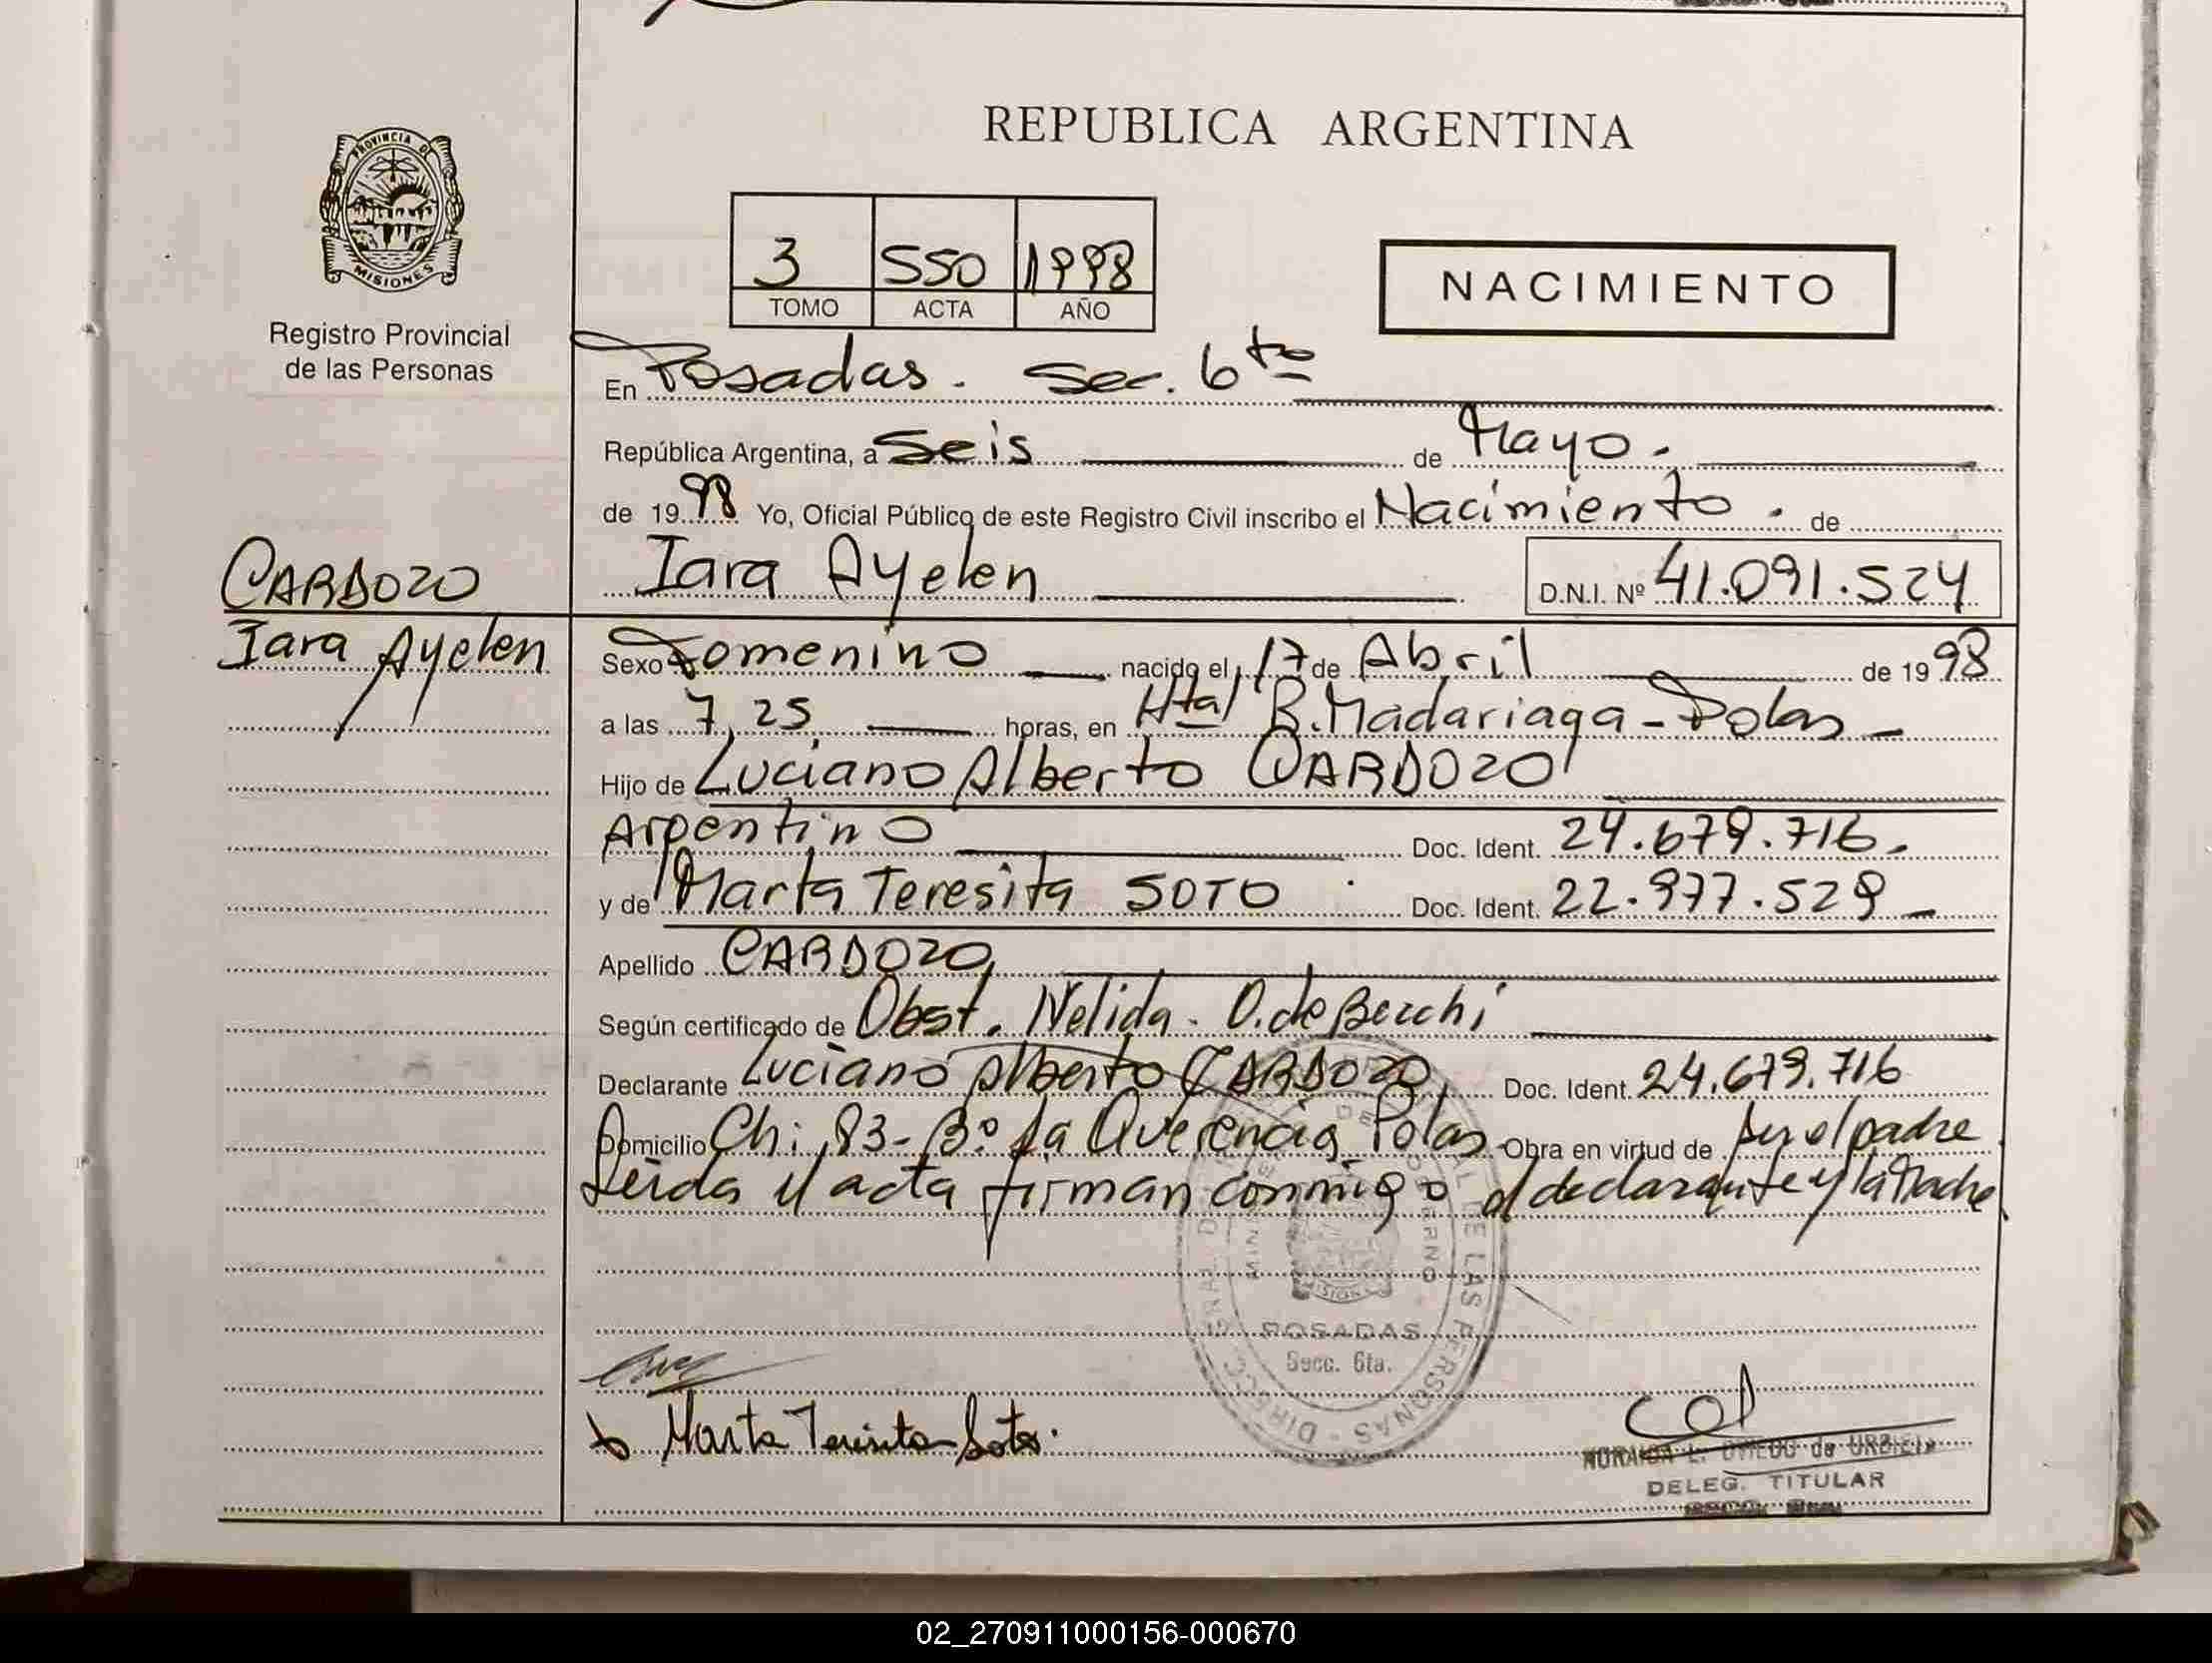 REPUBLICA ARGENTINA
PROVINCIA DE
MISIONES
Registro Provincial
de las Personas
3 550 1998
TOMO ACTA AÑO
NACIMIENTO
En Posadas. Sec. 6ta
República Argentina, a Seis de Mayo.
de 1998 Yo, Oficial Público de este Registro Civil inscribo el Nacimiento. de
CARDOZO
Iara Ayelen
Iara Ayelen D.N.I. Nº 41.091.524
Sexo Femenino nacido el 17 de Abril de 1998
a las 7,25 horas, en Htal R. Madariaga - Pdas
Hijo de Luciano Alberto CARDOZO
Argentino Doc. Ident. 24.679.716.
y de Marta Teresita SOTO Doc. Ident. 22.977.529
Apellido CARDOZO
Según certificado de Obst. Nelida. O. de Becchi
Declarante Luciano Alberto CARDOZO Doc. Ident. 24.679.716
Domicilio Ch: 83 - Bº La Querencia Pdas Obra en virtud de ser el padre
Leida el acta firman conmigo el declarante y la Madre
POSADAS
Secc. 6ta.
Marta Teresita Soto.
OVIEDO de URBIETA
DELEG. TITULAR
02_270911000156-000670